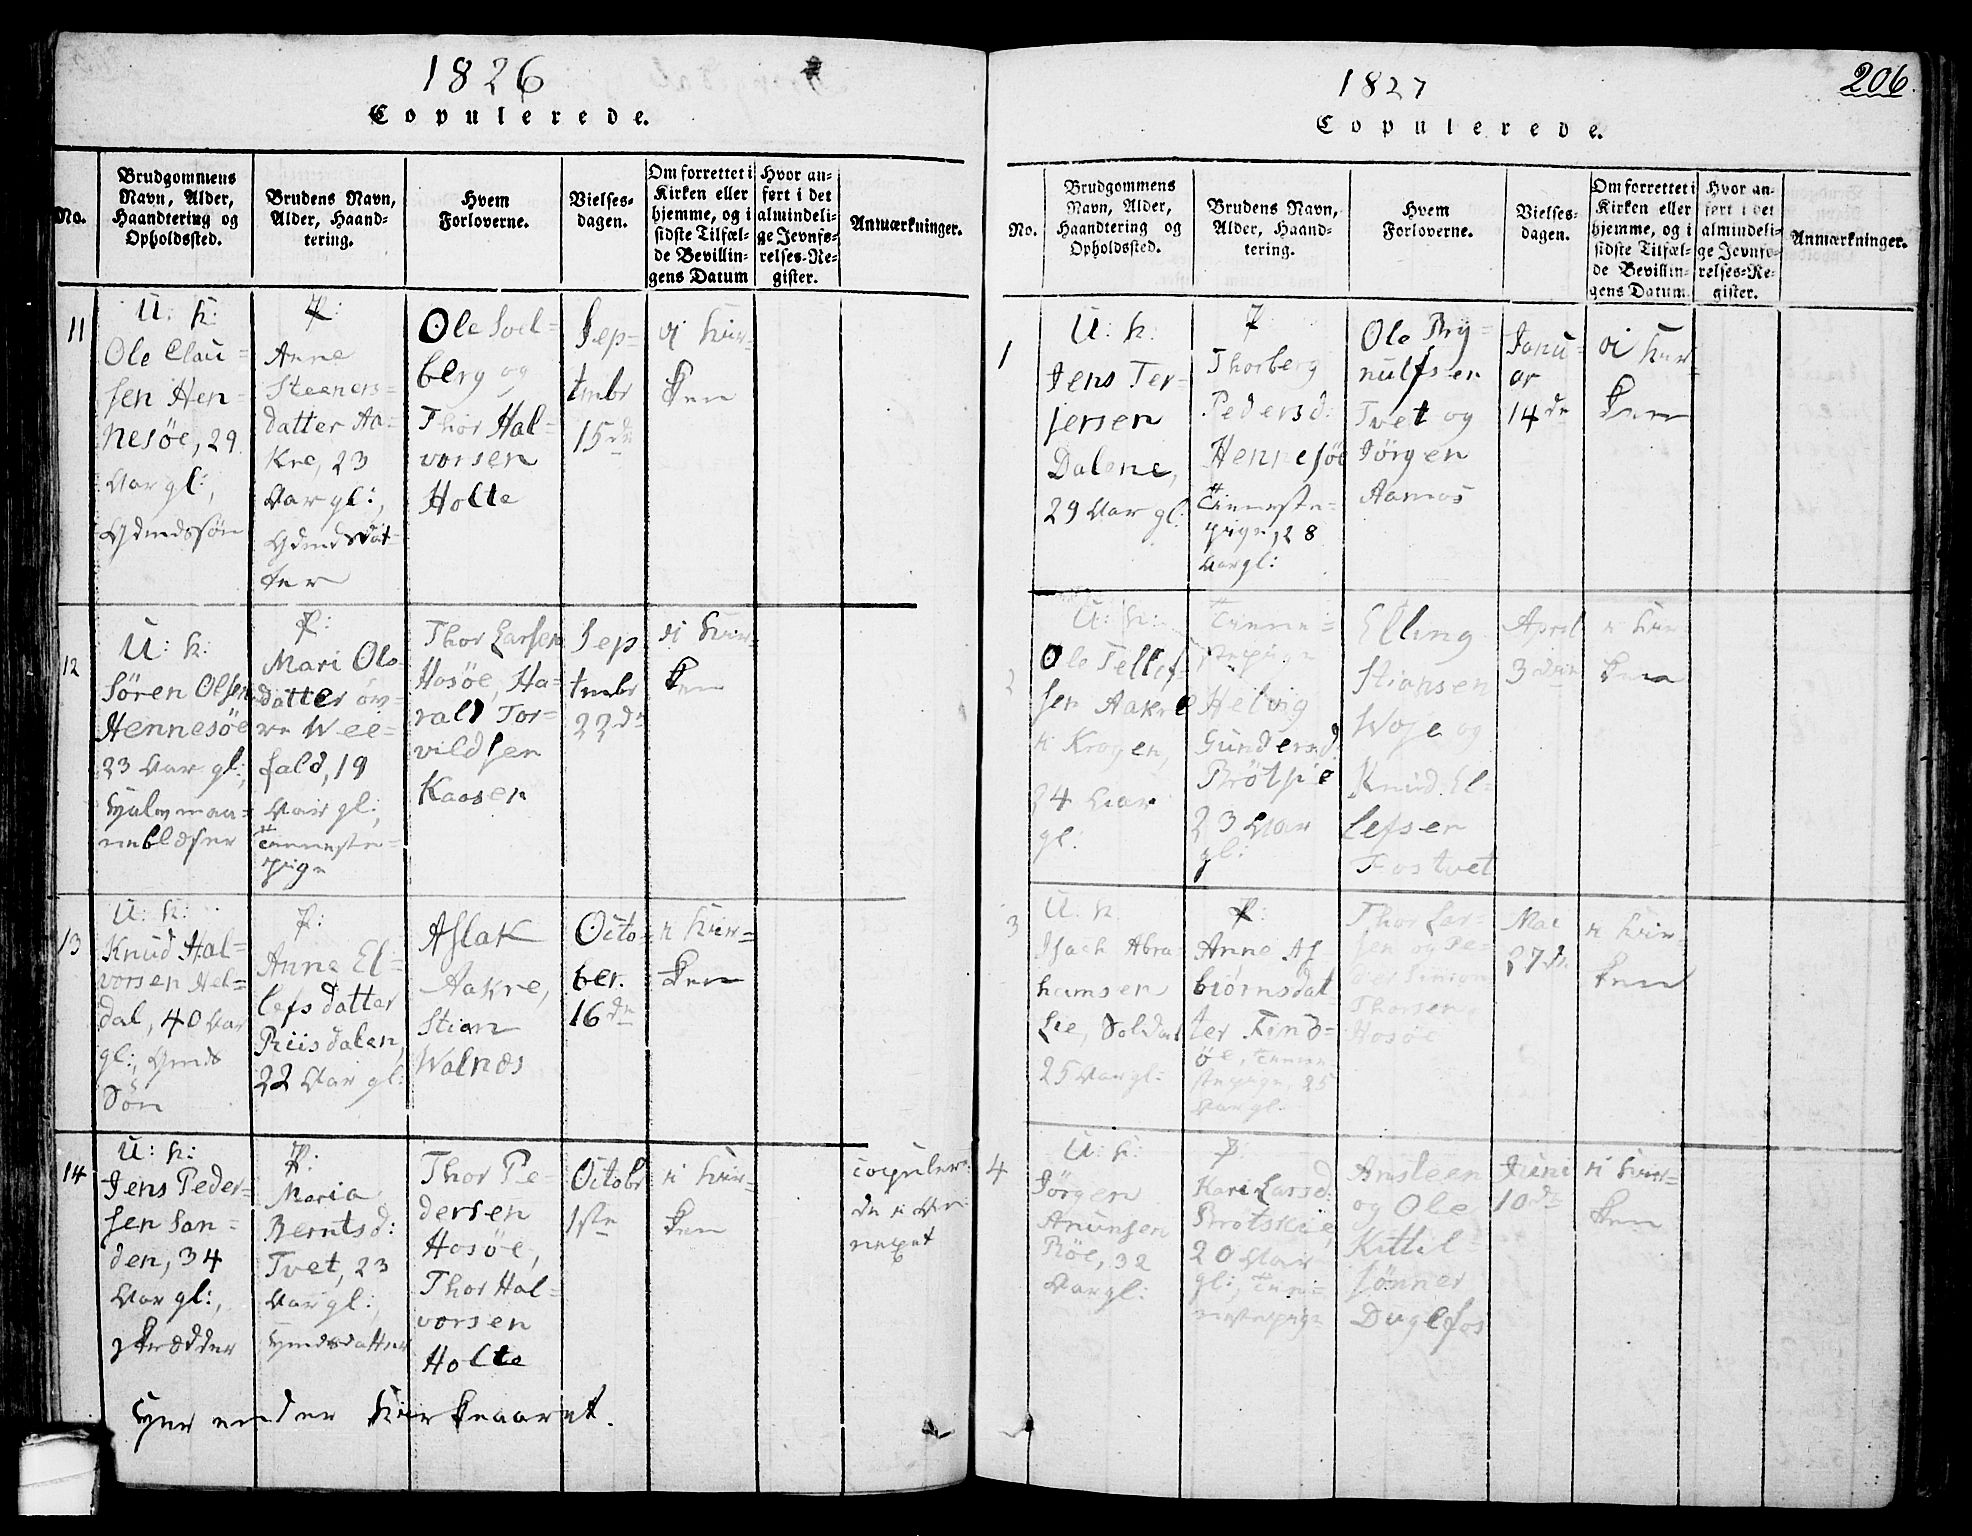 1826
Copulerede.
No.
Brudgommens
Navn, Alder,
Haandtering og
Opholdssted.
Brudens Navn,
Alder, Haand-
tering.
Hvem
Forloverne.
Vielses-
dagen.
Om forrettet i
Kirken eller
hjemme, og i
sidste Tilfæl-
de Bevillin-
gens Datum
Hvor an-
ført i det
almindeli-
ge Jevnfø-
relses-Re-
gister.
Anmærkninger.
11
U: K:
Ole Clau-
sen Hen-
nesøe, 29
Aar gl:,
Gdmdssøn
P:
Anne
Steeners-
datter Aa-
kre, 23
Aar gl:,
Gdmdsdat-
ter
Ole Soel-
berg og
Thor Hal-
vorsen
Holte
Sep-
tmbr
15de
i Kir-
ken
12
U: K:
Søren Olsen
Hennesøe
23 Aar gl:,
Halvmaa-
neblæser
P:
Mari Ols-
datter øv-
re Wee-
fald, 19
Aar gl:,
Tieneste-
pige
Thor Larsen
Hosøe, Ha-
rald Tor-
vildsen
Kaasen
Sep
tmbr
22de
i Kir-
ken
13
U: K:
Knud Hal-
vorsen Hel-
dal, 40 Aar
gl:, Gmds
Søn
P:
Anne El-
lefsdatter
Riisdalen,
22 Aar gl:
Aslak
Aakre,
Stian
Walnæs
Octo-
ber.
16de
i Kir-
ken
14
U: K:
Jens Peder-
sen San-
den, 34
Aar gl:,
Skrædder
P:
Maria
Berntsd:
Tvet, 23
Aar gl:,
Gmdsdatter
Thor Pe-
dersen
Hosøe,
Thor Hal-
vorsen
Holte
Octobr
1ste
i Kir-
ken
copuler
de i
Her ender Kirkeaaret.
1827
206
Copulerede.
No.
Brudgommens
Navn, Alder,
Haandtering og
Opholdssted.
Brudens Navn,
Alder, Haand-
tering.
Hvem
Forloverne.
Vielses-
dagen.
Om forrettet i
Kirken eller
hjemme, og i
sidste Tilfæl-
de Bevillin-
gens Datum.
Hvor an-
ført i det
almindeli-
ge Jevnfø-
relses-Re-
gister.
Anmærkninger.
1
U: K:
Jens Ter-
jersen
Dalene,
29 Aar gl:
P:
Thorberg
Pedersd:
Hennesøe
Tieneste-
pige, 28
Aar gl:
Ole Bry-
nulfsen
Tvet og
Jørgen
Aamos
Janu-
ar
14de
i Kir-
ken
2
U: K:
Ole Tellef-
sen Aakre
i Krogen,
24 Aar
gl:
Tiene-
stepige
Helvig
Gundersd:
Brøtskie
23 Aar
gl:
Elling
Stiansen
Woje og
Knud El-
lefsen
Fostvet
April
3die
i Kir-
ken
3
U: K:
Isach Abra-
hamsen
Lie, Soldat
25 Aar gl:
P:
Anne As-
biørnsdat-
ter Find-
øe, Tiene-
stepige, 25
Aar gl:
Thor Lar-
sen og Pe-
der Simon
Thorsen
Hosøe
Mai
27de
i Kir-
ken
4
U: K:
Jørgen
Anunsen
Røe, 32
Aar gl:
P:
Kari Larsd:
Brøtskie,
20 Aar
gl:, Tie-
nestepige
Ansteen
og Ole
Kittil-
sønner
Duglfos
Juni
10de
i Kir-
ken